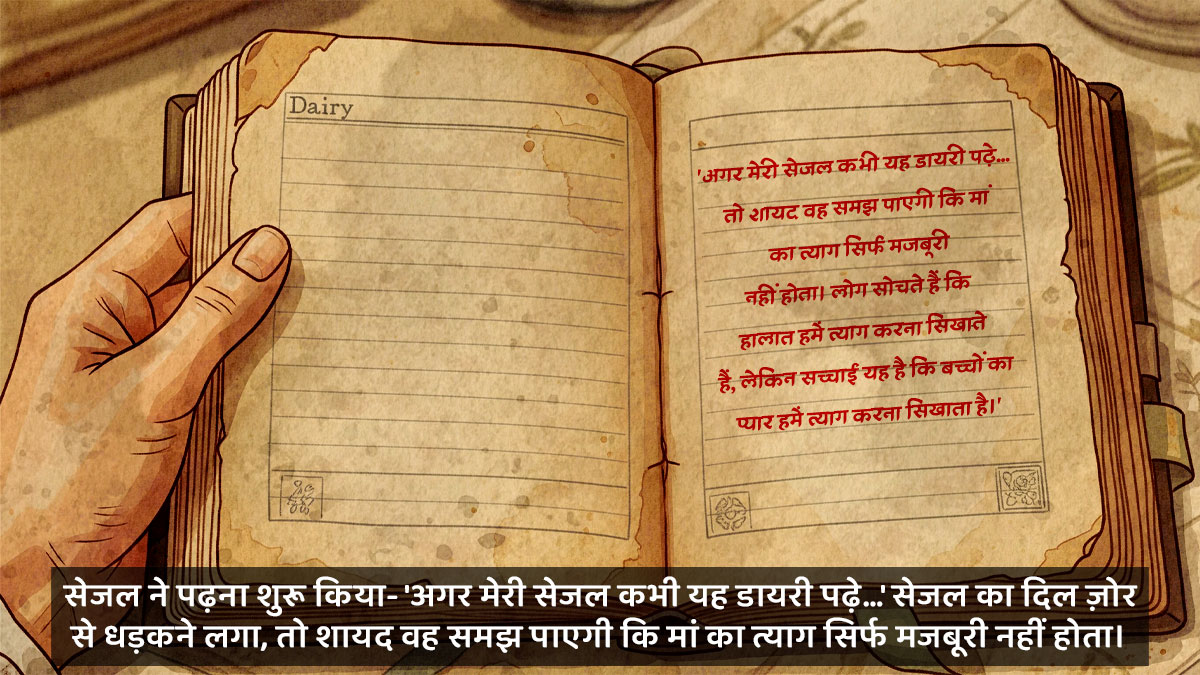 Dairy
'अगर मेरी सेजल कभी यह डायरी पढ़े...
तो शायद वह समझ पाएगी कि मां
का त्याग सिर्फ मजबूरी
नहीं होता। लोग सोचते हैं कि
हालात हमें त्याग करना सिखाते
हैं, लेकिन सच्चाई यह है कि बच्चों का
प्यार हमें त्याग करना सिखाता है।'
सेजल ने पढ़ना शुरू किया- 'अगर मेरी सेजल कभी यह डायरी पढ़े...' सेजल का दिल ज़ोर
से धड़कने लगा, तो शायद वह समझ पाएगी कि मां का त्याग सिर्फ मजबूरी नहीं होता।